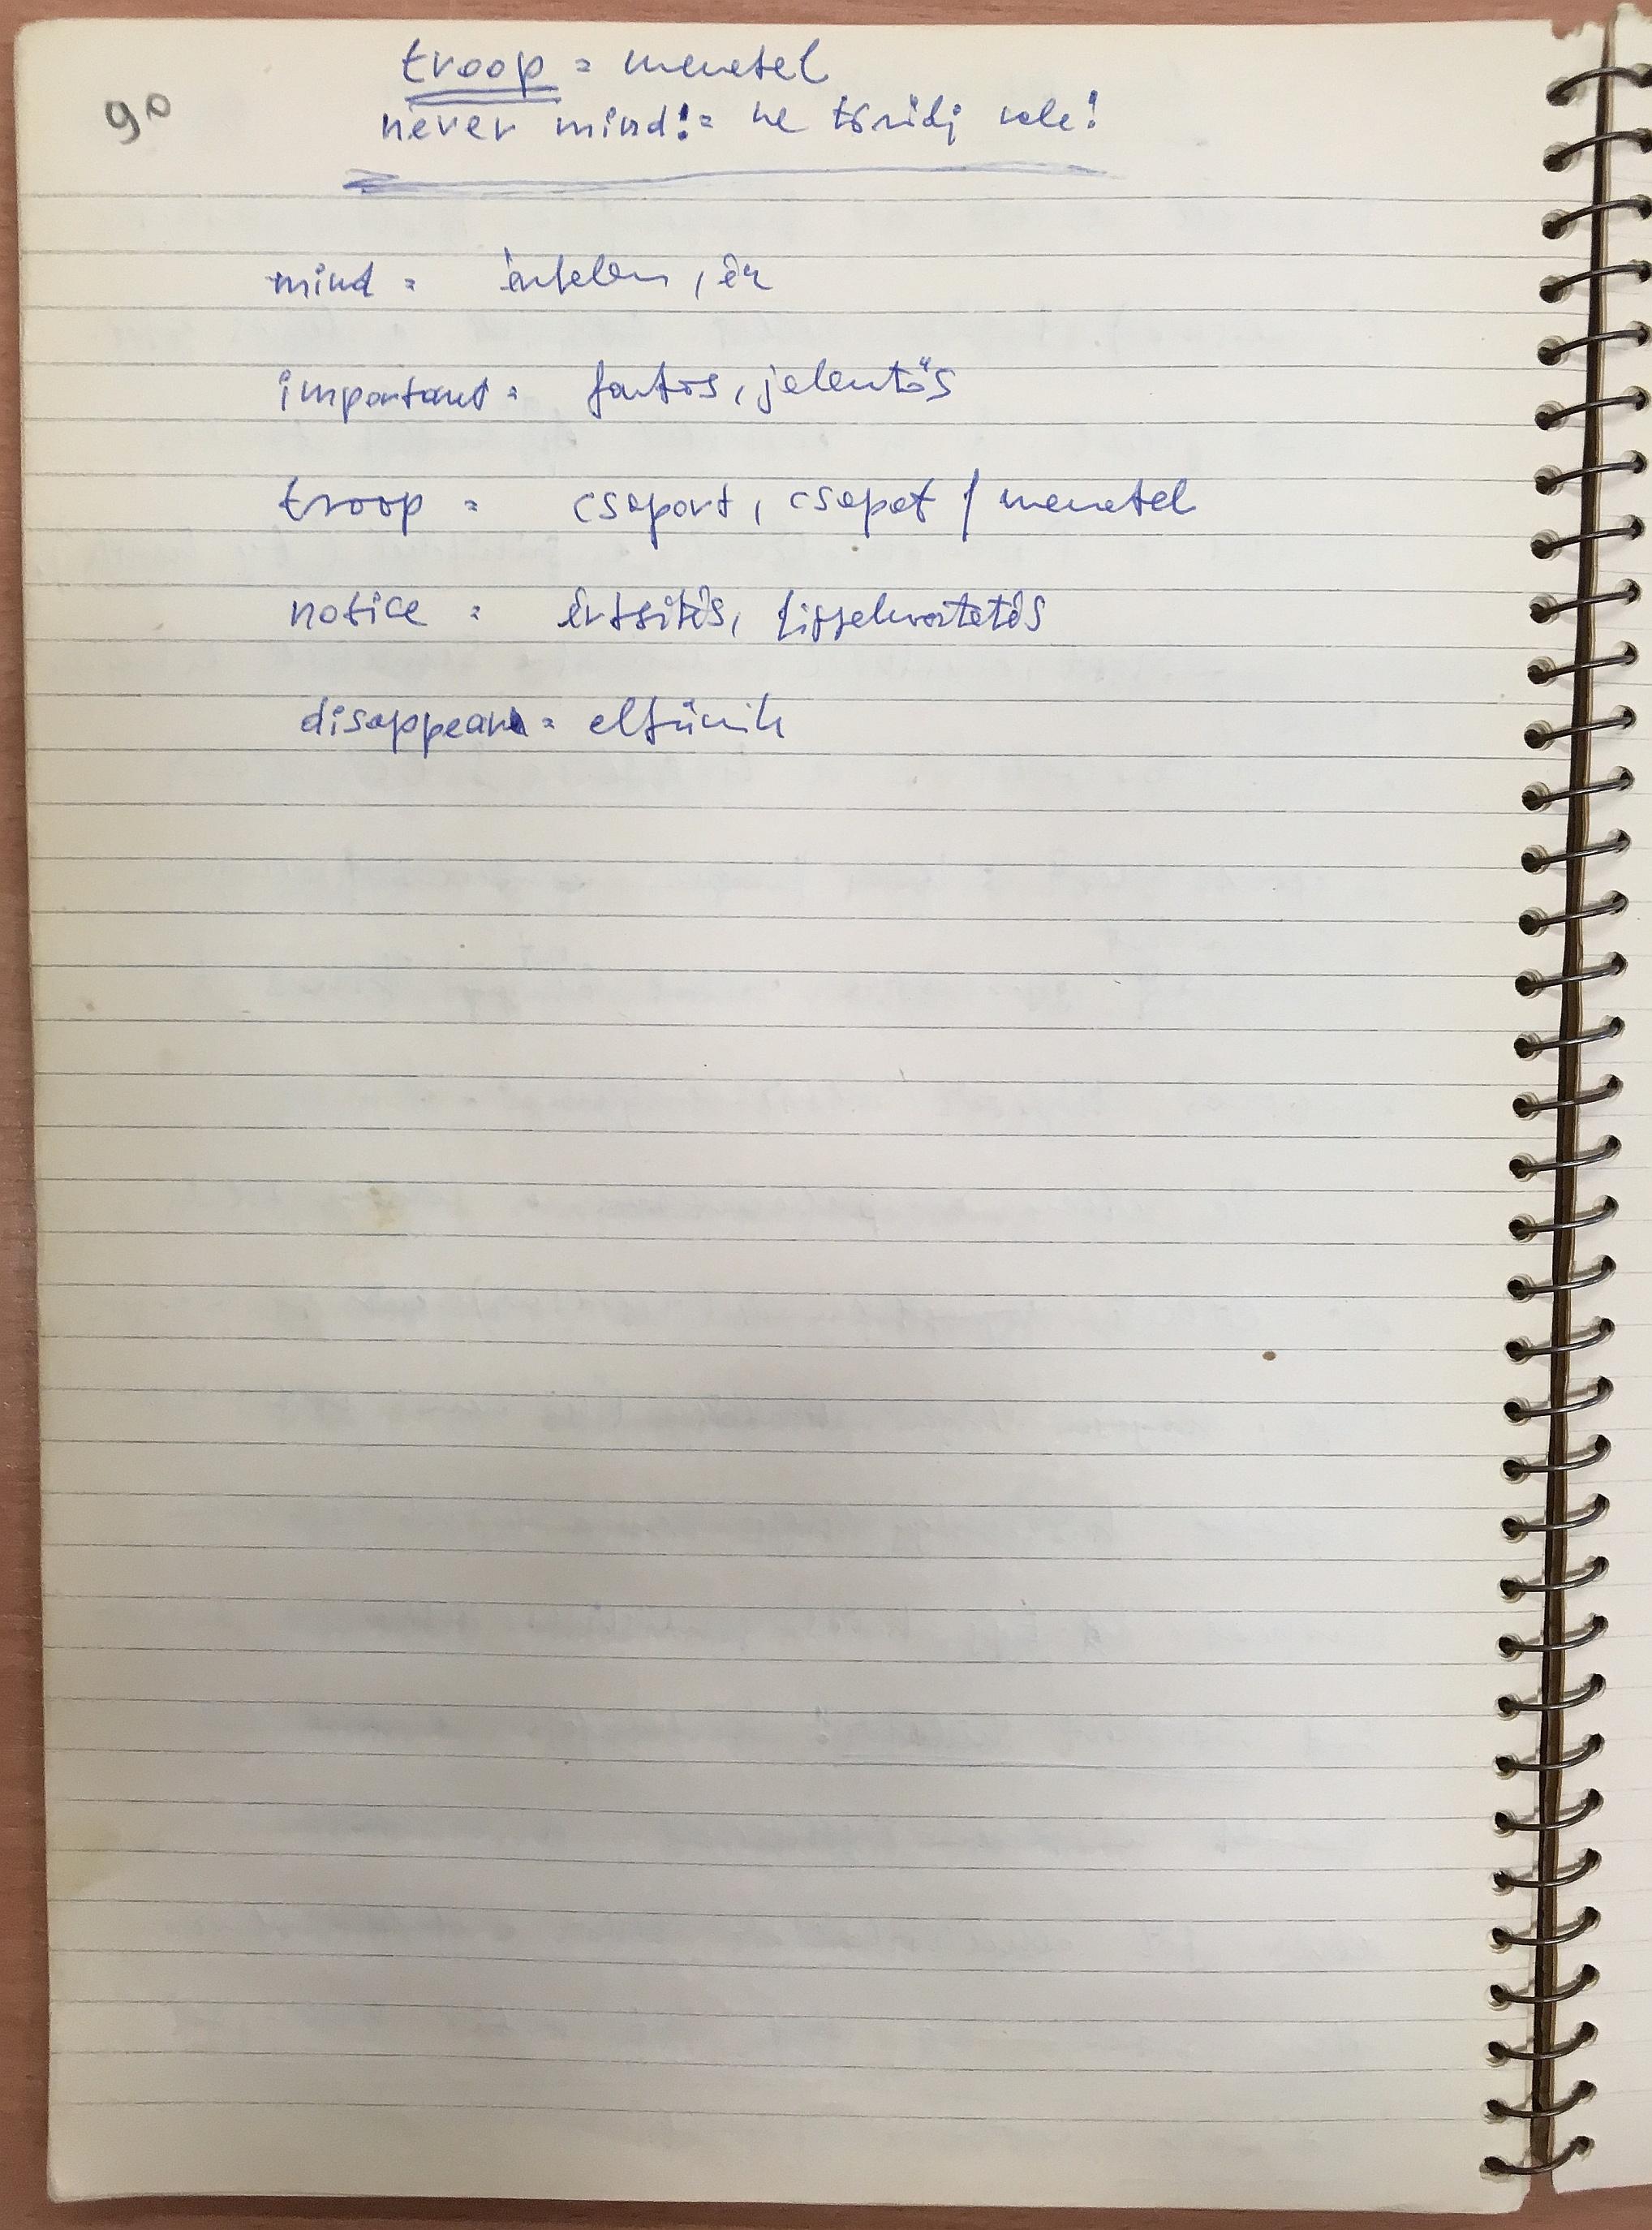 90
troop = menetel
never mind! = ne törődj vele!
mind = értelem, ész
important = fontos, jelentős
troop = csoport, csapat / menetel
notice = értesítés, figyelmeztetés
disappear = eltűnik